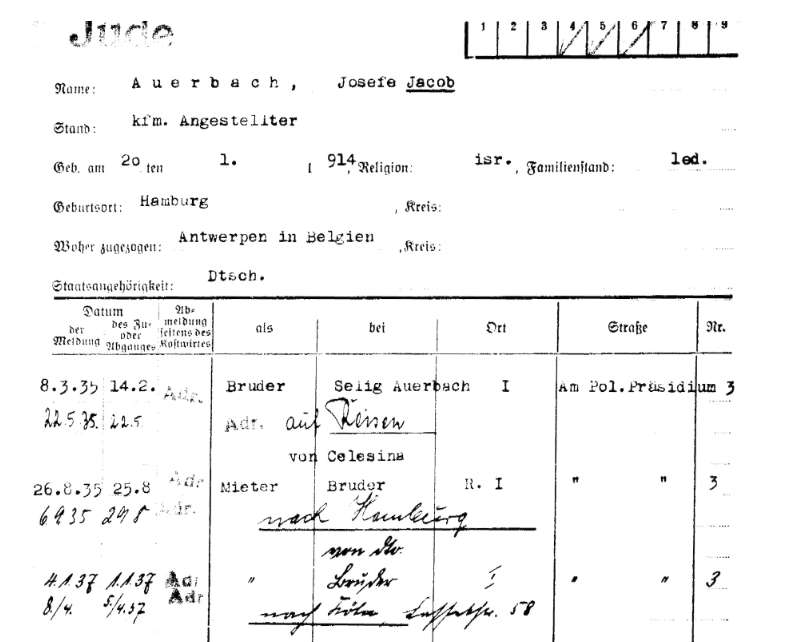 Jude
1 2 3 4 5 6 7 8 9
Name: Auerbach, Josefe Jacob
Stand: kfm. Angestellter
Geb. am 2o ten 1. 1 914, Religion: isr., Familienstand: led.
Geburtsort: Hamburg , Kreis:
Woher zugezogen: Antwerpen in Belgien , Kreis:
Staatsangehörigkeit: Dtsch.
Datum der Meldung des Zu- oder Abganges Ab- meldung seitens des Kostwirtes als bei Ort Straße Nr.
8.3.35 14.2. Adr. Bruder Selig Auerbach I Am Pol.Präsidium 3
22.5.35. 22.5. Adr. auf Reisen
von Celesina
26.8.35 25.8 Adr Mieter Bruder R. I " " 3
6 9 35 29 8 Adr. nach Hamburg
von dto.
4.1.37 1.1.37 Adr " Bruder I " " 3
8./4. 5/4.37 Adr nach Köln, 58